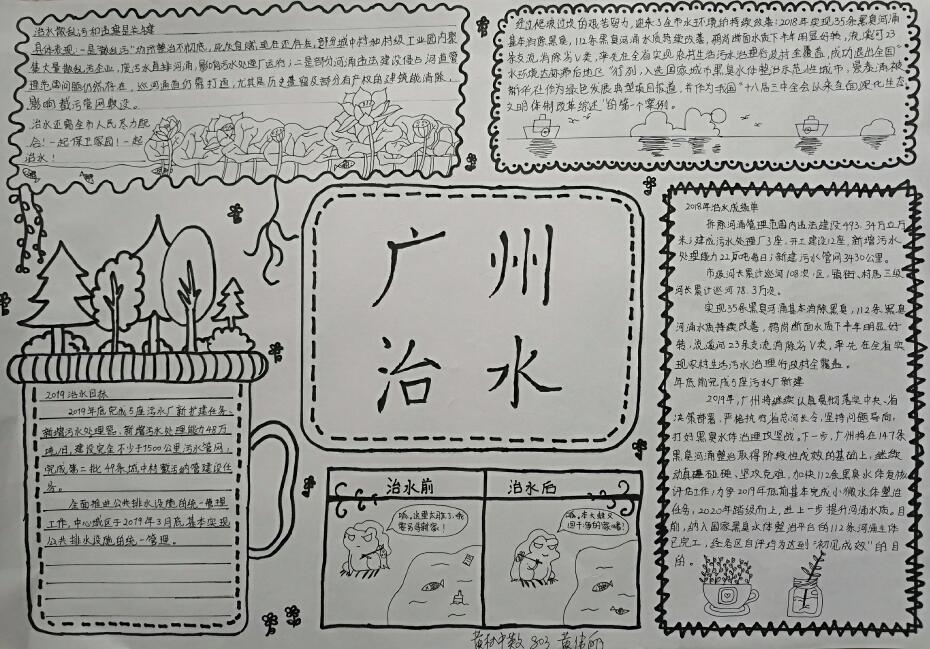 治水散乱污和违建是关键
具体表现:一是"散乱污"场所整治不彻底,死灰复燃,现在还存在,部分城中村和村级工业园内聚
集大量散乱污企业,废污水直排河涌,影响污水处理厂运行;二是部分河涌违法建设侵占河道管
理范围问题仍然存在,巡河通道仍需打通,尤其是历史遗留及部分有产权的建筑能清除,
影响截污管网敷设。
治水还需全市人民尽力配
合!一起保卫家园!一起
治水!
经过
艰苦努力,迎来了全市水环境的持续改善:2018年实现35条黑臭河涌
基本消除黑臭,112条黑臭河涌水质持续改善,鸦岗断面水质下半年明显好转,流溪河23
条支流消除劣V类,率先在全省实现农村生活污水治理行政村全覆盖,成功退出全国"
水环境达标滞后地区"行列,入选国家城市黑臭水体治理示范性城市,
作为绿色发展典型项目报道,有作为我国"十八届三中全会以来全面深化生态
文明体制改革综述"的第一个案例。
广州
治水
2018年治水成绩单
拆除河涌管理范围内违法建设493.34万立方
米;建成污水处理厂3座,开工建设12座,新增污水
处理能力22万吨每日;新建污水管网3430公里。
市级河长累计巡河108次,区、镇街、村居三级
河长累计巡河78.3万次。
实现35条黑臭河涌基本消除黑臭,112条黑臭
河涌水质持续改善,鸦岗断面水质下半年明显好
转,流溪河23条支流消除劣V类,率先在全省实
现农村生活污水治理行政村全覆盖。
年底前完成5座污水厂新建
2019年,广州将继续认真贯彻落实中央、省
决策部署,严格执行省总河长令,坚持问题导向,
打好黑臭水体治理攻坚战。下一步,广州将在147条
黑臭河涌整治取得阶段性成效的基础上,继续
动真碰硬、坚攻克难,加快112条黑臭水体复核
评估工作;力争2019年底前基本完成小微水体整治
任务,2020年踏级而上,进一步提升河涌水质。目
前,纳入国家黑臭水体整治平台的112条河涌主体
已完工,经各区自评均为达到"初见成效"的目
的。
2019治水目标
2019年底完成5座污水厂新扩建任务、
新增污水处理器,新增污水处理能力48万
吨/日,建设完全不少于1500公里污水管网,
完成第二批49条城中村截污纳管建设任
务。
全面推进公共排水设施的统一管理
工作,中心城区于2019年3月底基本实现
公共排水设施的统一管理。
治水前 治水后
咦,这里太脏了,我
要另寻新家!
哦,本大姐又
回干净的家咯!
黄
803